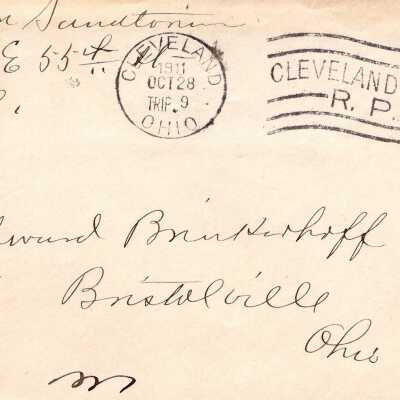 Sandtorium
E 55th St
CLEVELAND
1911
OCT 28
TRIP. 9
OHIO
CLEVELAND
R. P.
Brinkerhoff
Bristolville
Ohio